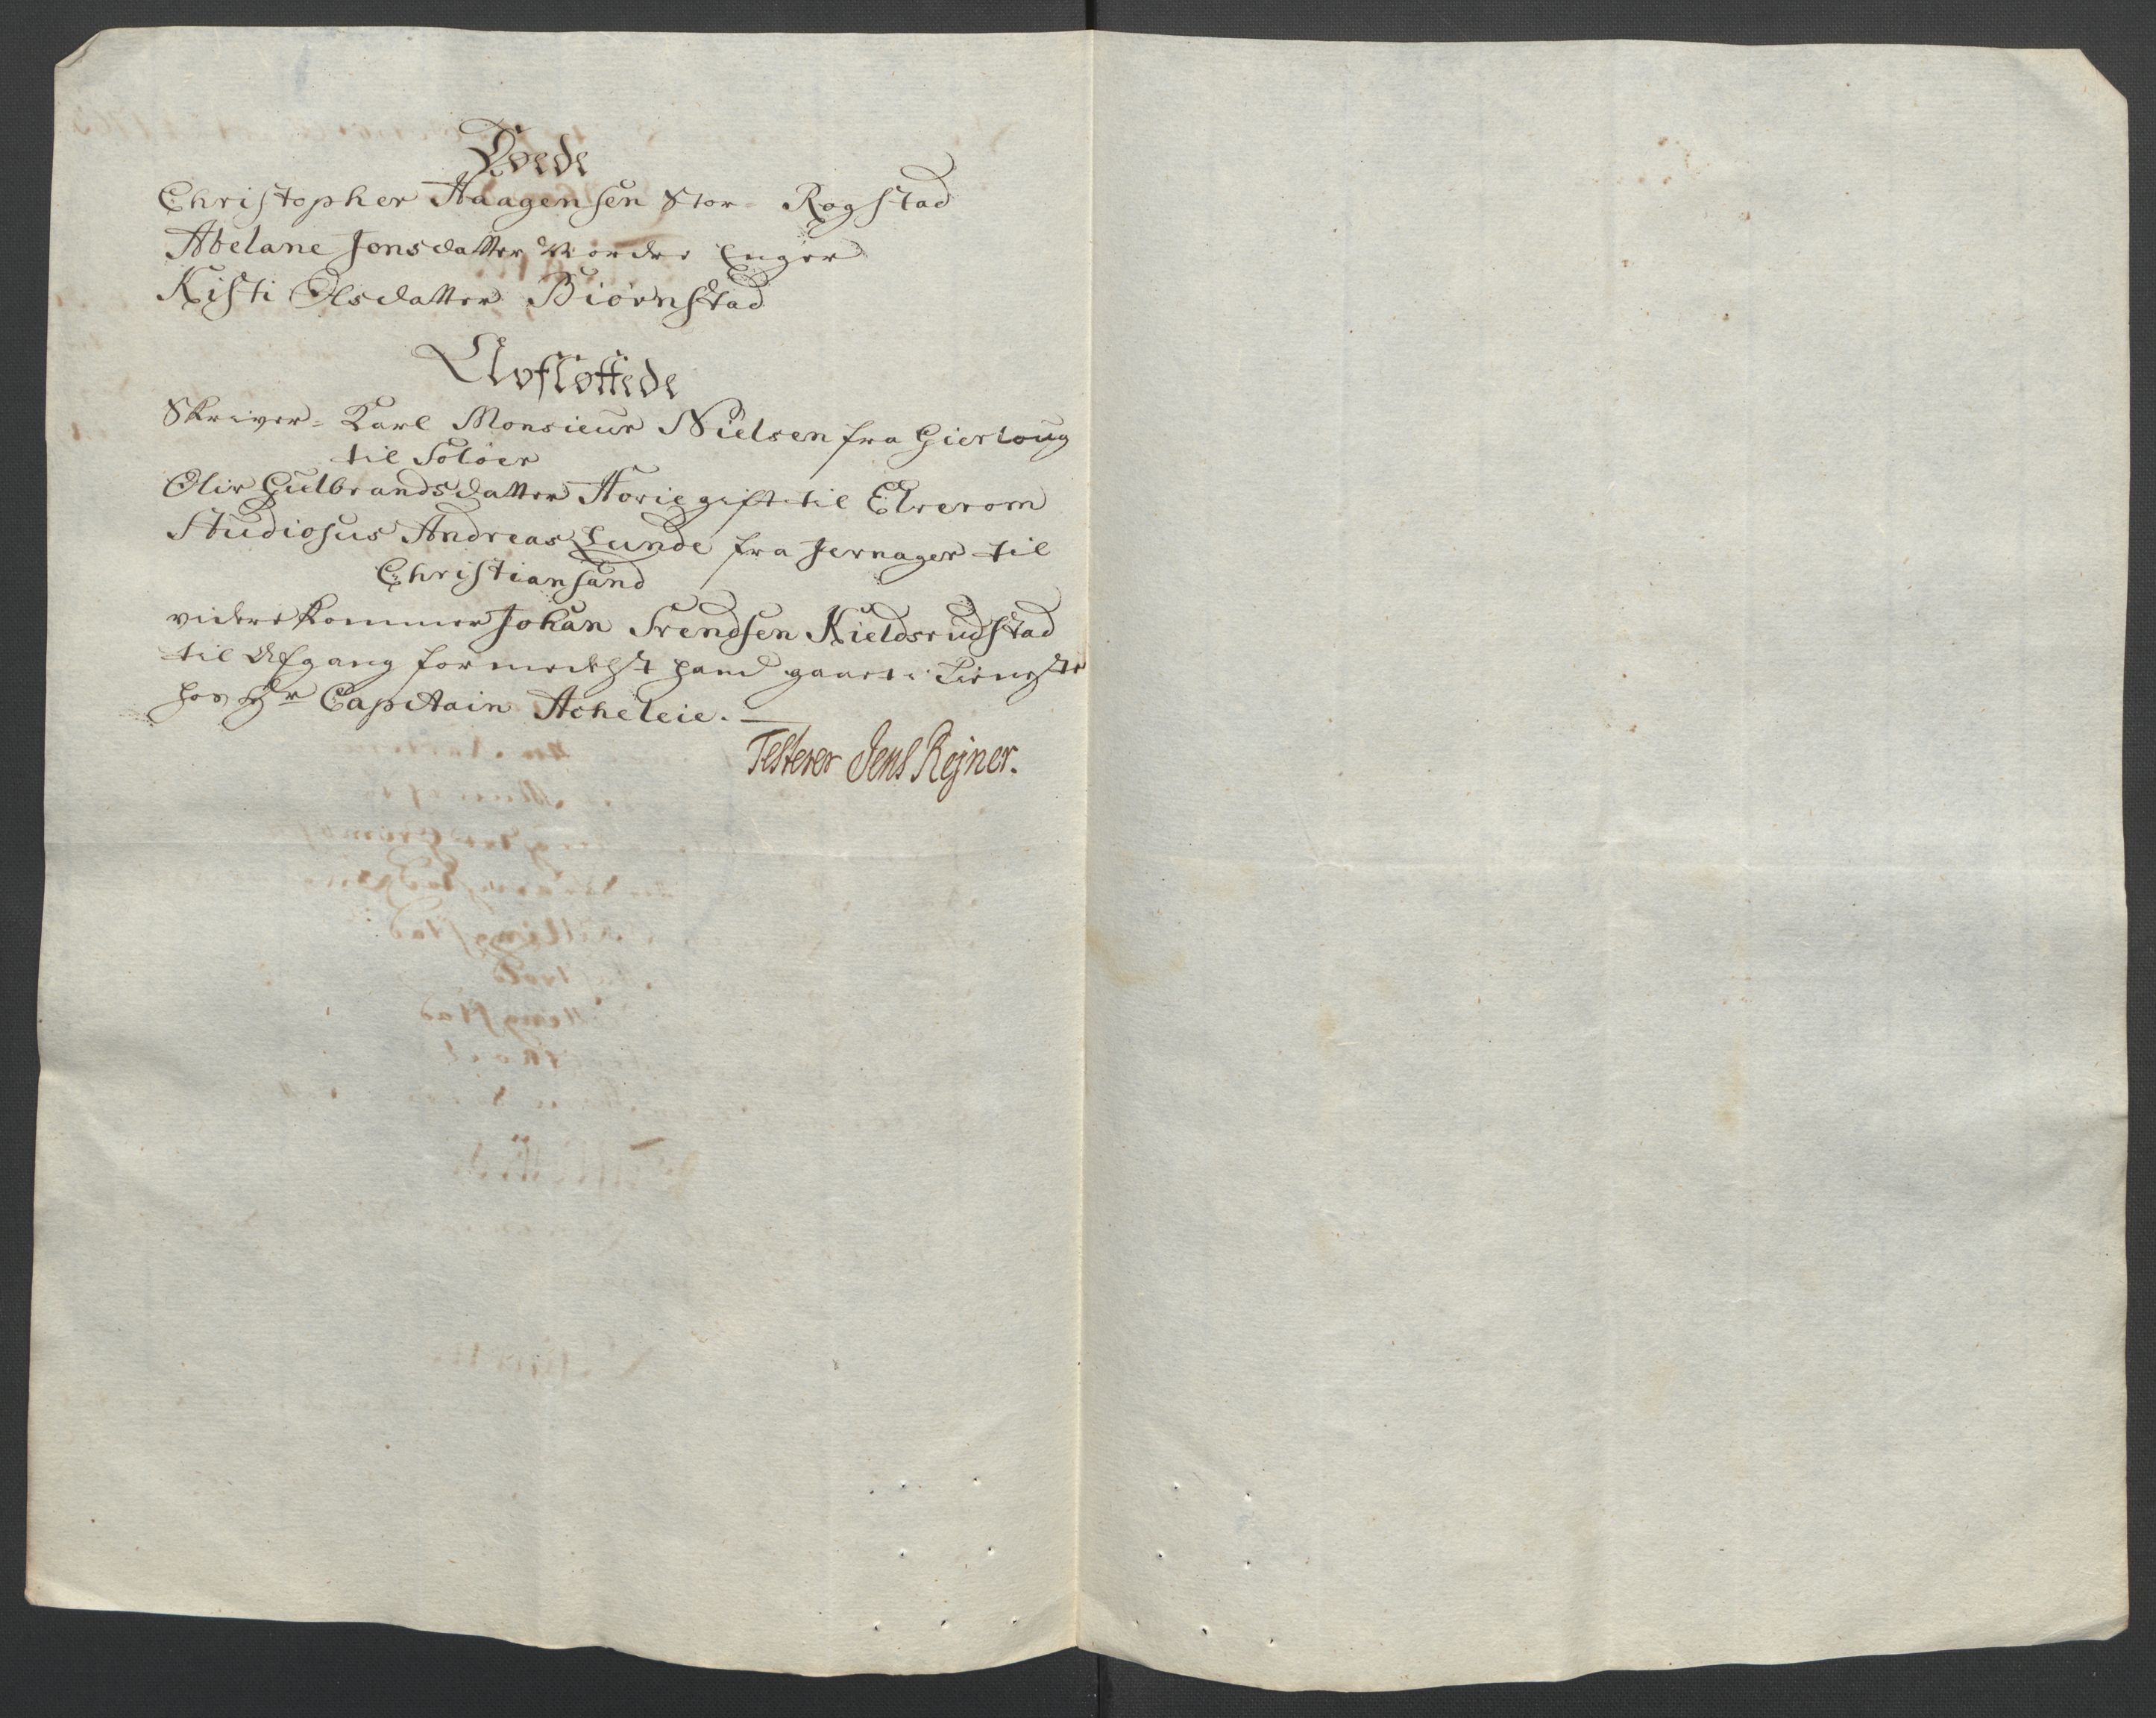 Døde
Christopher Haagensen Stor- Rogstad
Abelane Jonsdatter Nordre Enger
Kisti Olsdatter Biørnstad
Udfløttede
Skriver- Karl Monsieur Nielsen fra Gierloug
til Soløer
Olir Gulbrandsdatter Horie gift til Elverom
Studiosus Andreas Lunde fra Jernager til
Christiansand
videre kommer Johan Svendsen Kieldsrudstad
til Afgang formedelst hand gaaet i Tieneste
hos Hr Capitain Acheleie. —
Testerer Jens Rejner.